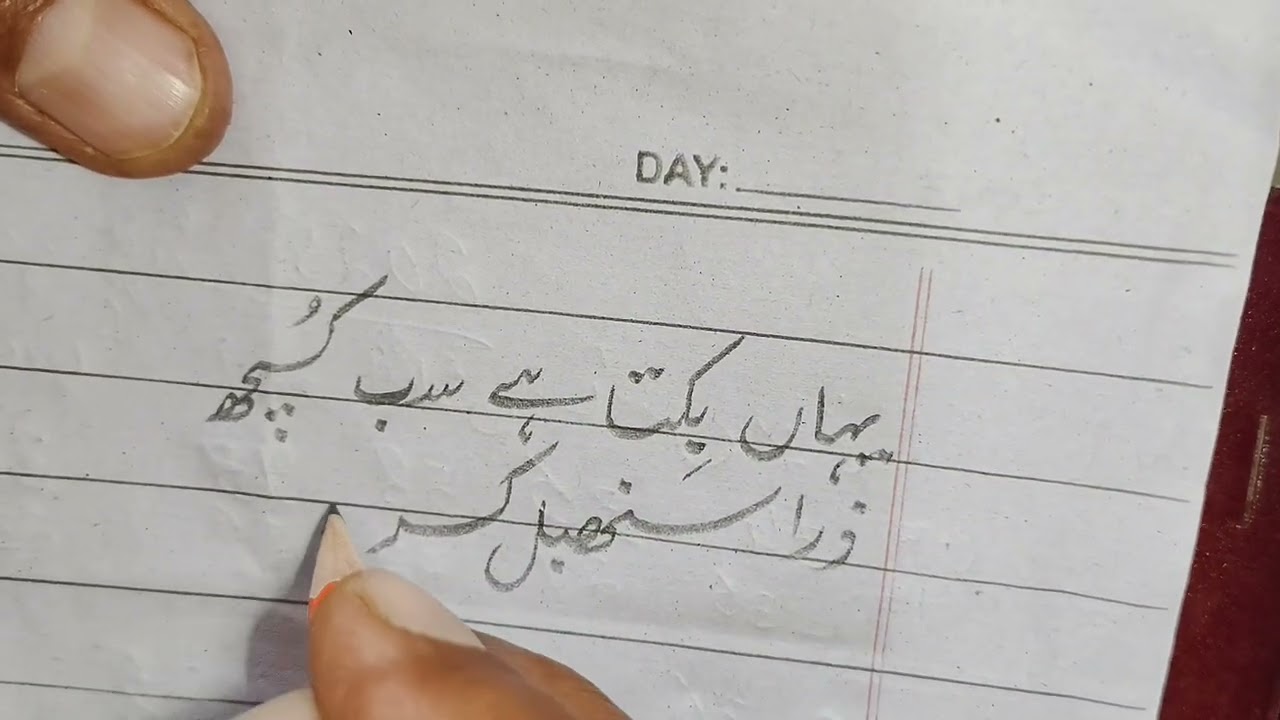 DAY:
یہاں بِکتا ہے سب کُچھ
ذرا سنبھل کر